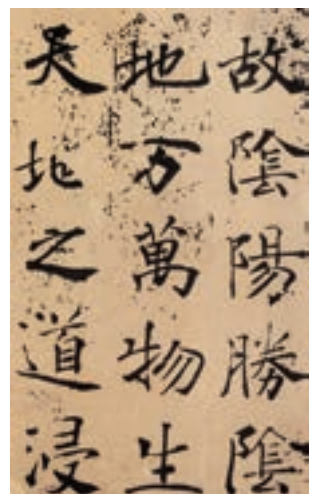 故陰陽勝陰
地万萬物生
天地之道浸